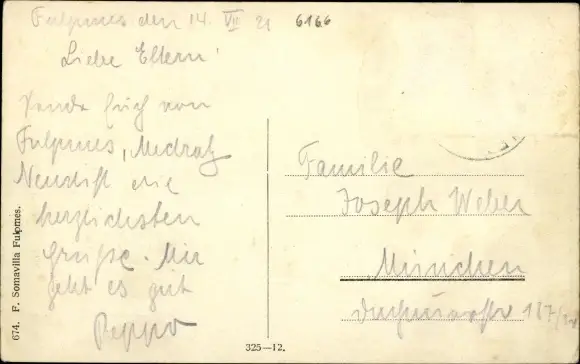 Fulpmes den 14. VII 21
6166
Liebe Eltern!
Sende Euch von
Fulpmes, Medratz
Neustift die
herzlichsten
Grüße. Mir
geht es gut
Peppo
Familie
Joseph Weber
München
187/
674. F. Somavilla Fulpmes.
325—12.